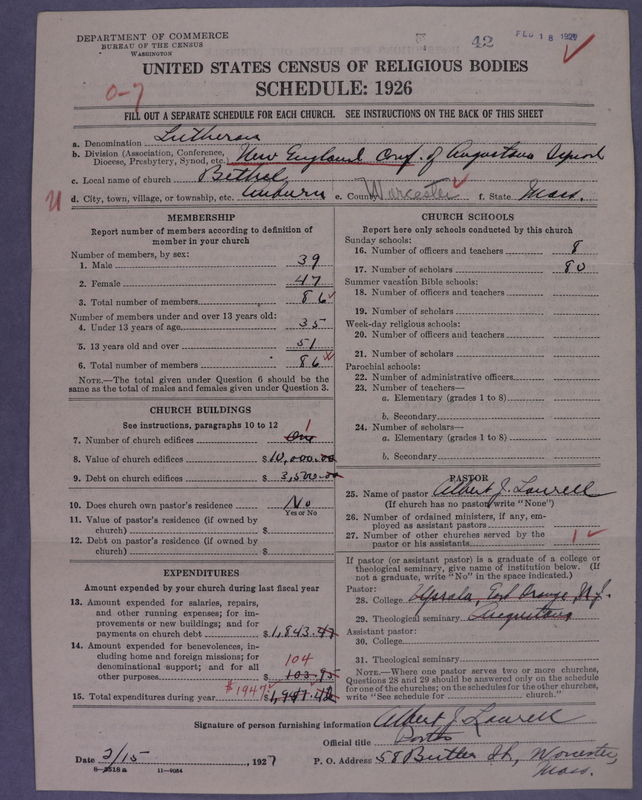 DEPARTMENT OF COMMERCE
BUREAU OF THE CENSUS
WASHINGTON
42
FEB 18 1927
UNITED STATES CENSUS OF RELIGIOUS BODIES
SCHEDULE: 1926
0-7
FILL OUT A SEPARATE SCHEDULE FOR EACH CHURCH. SEE INSTRUCTIONS ON THE BACK OF THIS SHEET
a. Denomination Lutheran
b. Division (Association, Conference, Diocese, Presbytery, Synod, etc.) New England Conf. of Augustana Synod
c. Local name of church Bethel
d. City, town, village, or township, etc. Auburn e. County Worcester f. State Mass.
MEMBERSHIP
Report number of members according to definition of
member in your church
Number of members, by sex:
1. Male 39
2. Female 47
3. Total number of members 86
Number of members under and over 13 years old:
4. Under 13 years of age 35
5. 13 years old and over 51
6. Total number of members 86
NOTE.—The total given under Question 6 should be
same as the total of males and females given under Question 3.
CHURCH BUILDINGS
See instructions, paragraphs 10 to 12
7. Number of church edifices One 1
8. Value of church edifices $10,000.00
9. Debt on church edifices $3,500.00
10. Does church own pastor's residence No
Yes or No
11. Value of pastor's residence (if owned by
church) $
12. Debt on pastor's residence (if owned by
church) $
EXPENDITURES
Amount expended by your church during last fiscal year
13. Amount expended for salaries, repairs,
and other running expenses; for im-
provements or new buildings; and for
payments on church debt $1,843.47
14. Amount expended for benevolences,
including home and foreign missions; for
denominational support; and for all
other purposes 104 103.95
15. Total expenditures during year $1947 $1,947.42
CHURCH SCHOOLS
Report here only schools conducted by this church
Sunday schools:
16. Number of officers and teachers 8
17. Number of scholars 80
Summer vacation Bible schools:
18. Number of officers and teachers
19. Number of scholars
Week-day religious schools:
20. Number of officers and teachers
21. Number of scholars
Parochial schools:
22. Number of administrative officers
23. Number of teachers—
a. Elementary (grades 1 to 8)
b. Secondary
24. Number of scholars—
a. Elementary (grades 1 to 8)
b. Secondary
PASTOR
25. Name of pastor Albert J. Laurell
(If church has no pastor, write "None")
26. Number of ordained ministers, if any, em-
ployed as assistant pastors
27. Number of other churches served by the
pastor or his assistants 1
If pastor (or assistant pastor) is a graduate of a college or
theological seminary, give name of institution below. (If
not a graduate, write "No" in the space indicated.)
Pastor:
28. College Upsala, East Orange, N.J.
29. Theological seminary Augustana
Assistant pastor:
30. College
31. Theological seminary
NOTE.—Where one pastor serves two or more churches,
Questions 28 and 29 should be answered only on the schedule
for one of the churches; on the schedules for the other churches,
write "See schedule for church."
Signature of person furnishing information Albert J. Laurell
Official title Pastor
Date 2/15, 1927 P. O. Address 58 Butler St., Worcester,
Mass.
8-3318a 11-9084